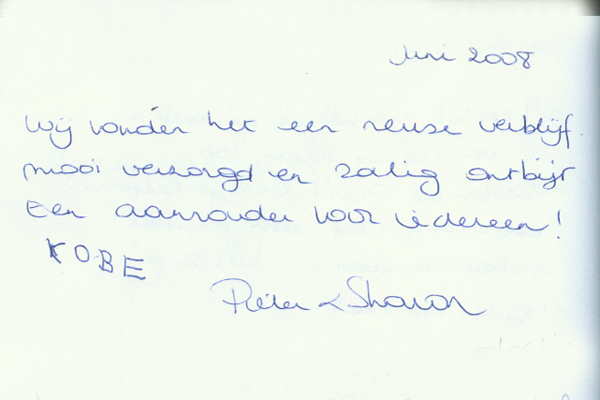 Juni 2008
Wij vonden het een reuse verblijf
mooi verzorgd en zalig ontbijt
Een aanrader voor iedereen!
KOBE
Pieter & Sharon